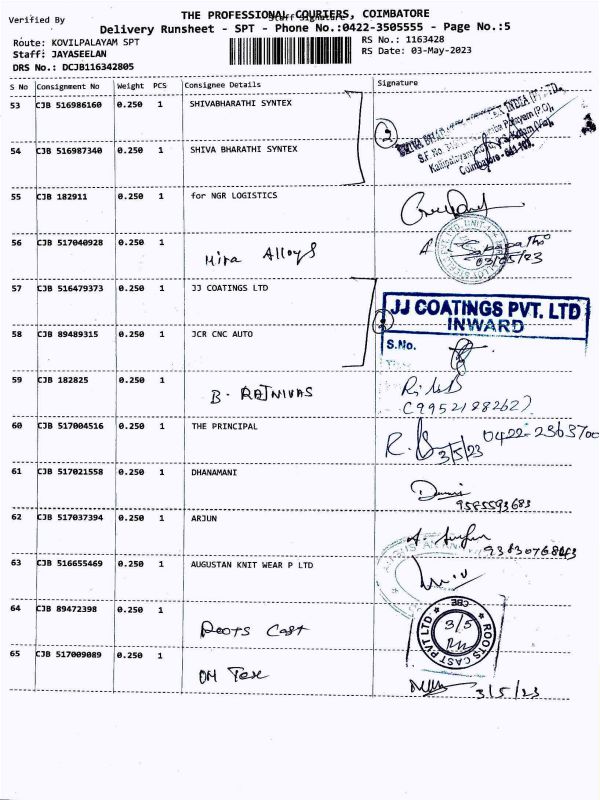 THE PROFESSIONAL COURIERS, COIMBATORE
Verified By
Staff Signature
Delivery Runsheet - SPT - Phone No.:0422-3505555 - Page No.:5
Route: KOVILPALAYAM SPT
RS No.: 1163428
Staff: JAYASEELAN
RS Date: 03-May-2023
DRS No.: DCJB116342805
S No Consignment No Weight PCS Consignee Details Signature
53 CJB 516986160 0.250 1 SHIVABHARATHI SYNTEX
2
INDIA (P) LTD.
S.F. No
Coimbatore - 641 107.
54 CJB 516987340 0.250 1 SHIVA BHARATHI SYNTEX
55 CJB 182911 0.250 1 for NGR LOGISTICS
56 CJB 517040928 0.250 1 Mira Alloys
03/05/23
57 CJB 516479373 0.250 1 JJ COATINGS LTD
JJ COATINGS PVT. LTD
INWARD
S.No.
58 CJB 89489315 0.250 1 JCR CNC AUTO
59 CJB 182825 0.250 1 B. RAJNIVAS
(9952188262)
60 CJB 517004516 0.250 1 THE PRINCIPAL
3/5/23 0422-2363700
61 CJB 517021558 0.250 1 DHANAMANI
9585593683
62 CJB 517037394 0.250 1 ARJUN
63 CJB 516655469 0.250 1 AUGUSTAN KNIT WEAR P LTD
64 CJB 89472398 0.250 1 Roots Cast
ROOTS CAST PVT LTD
CBE
3/5
65 CJB 517009089 0.250 1 OM Tex
3/5/23